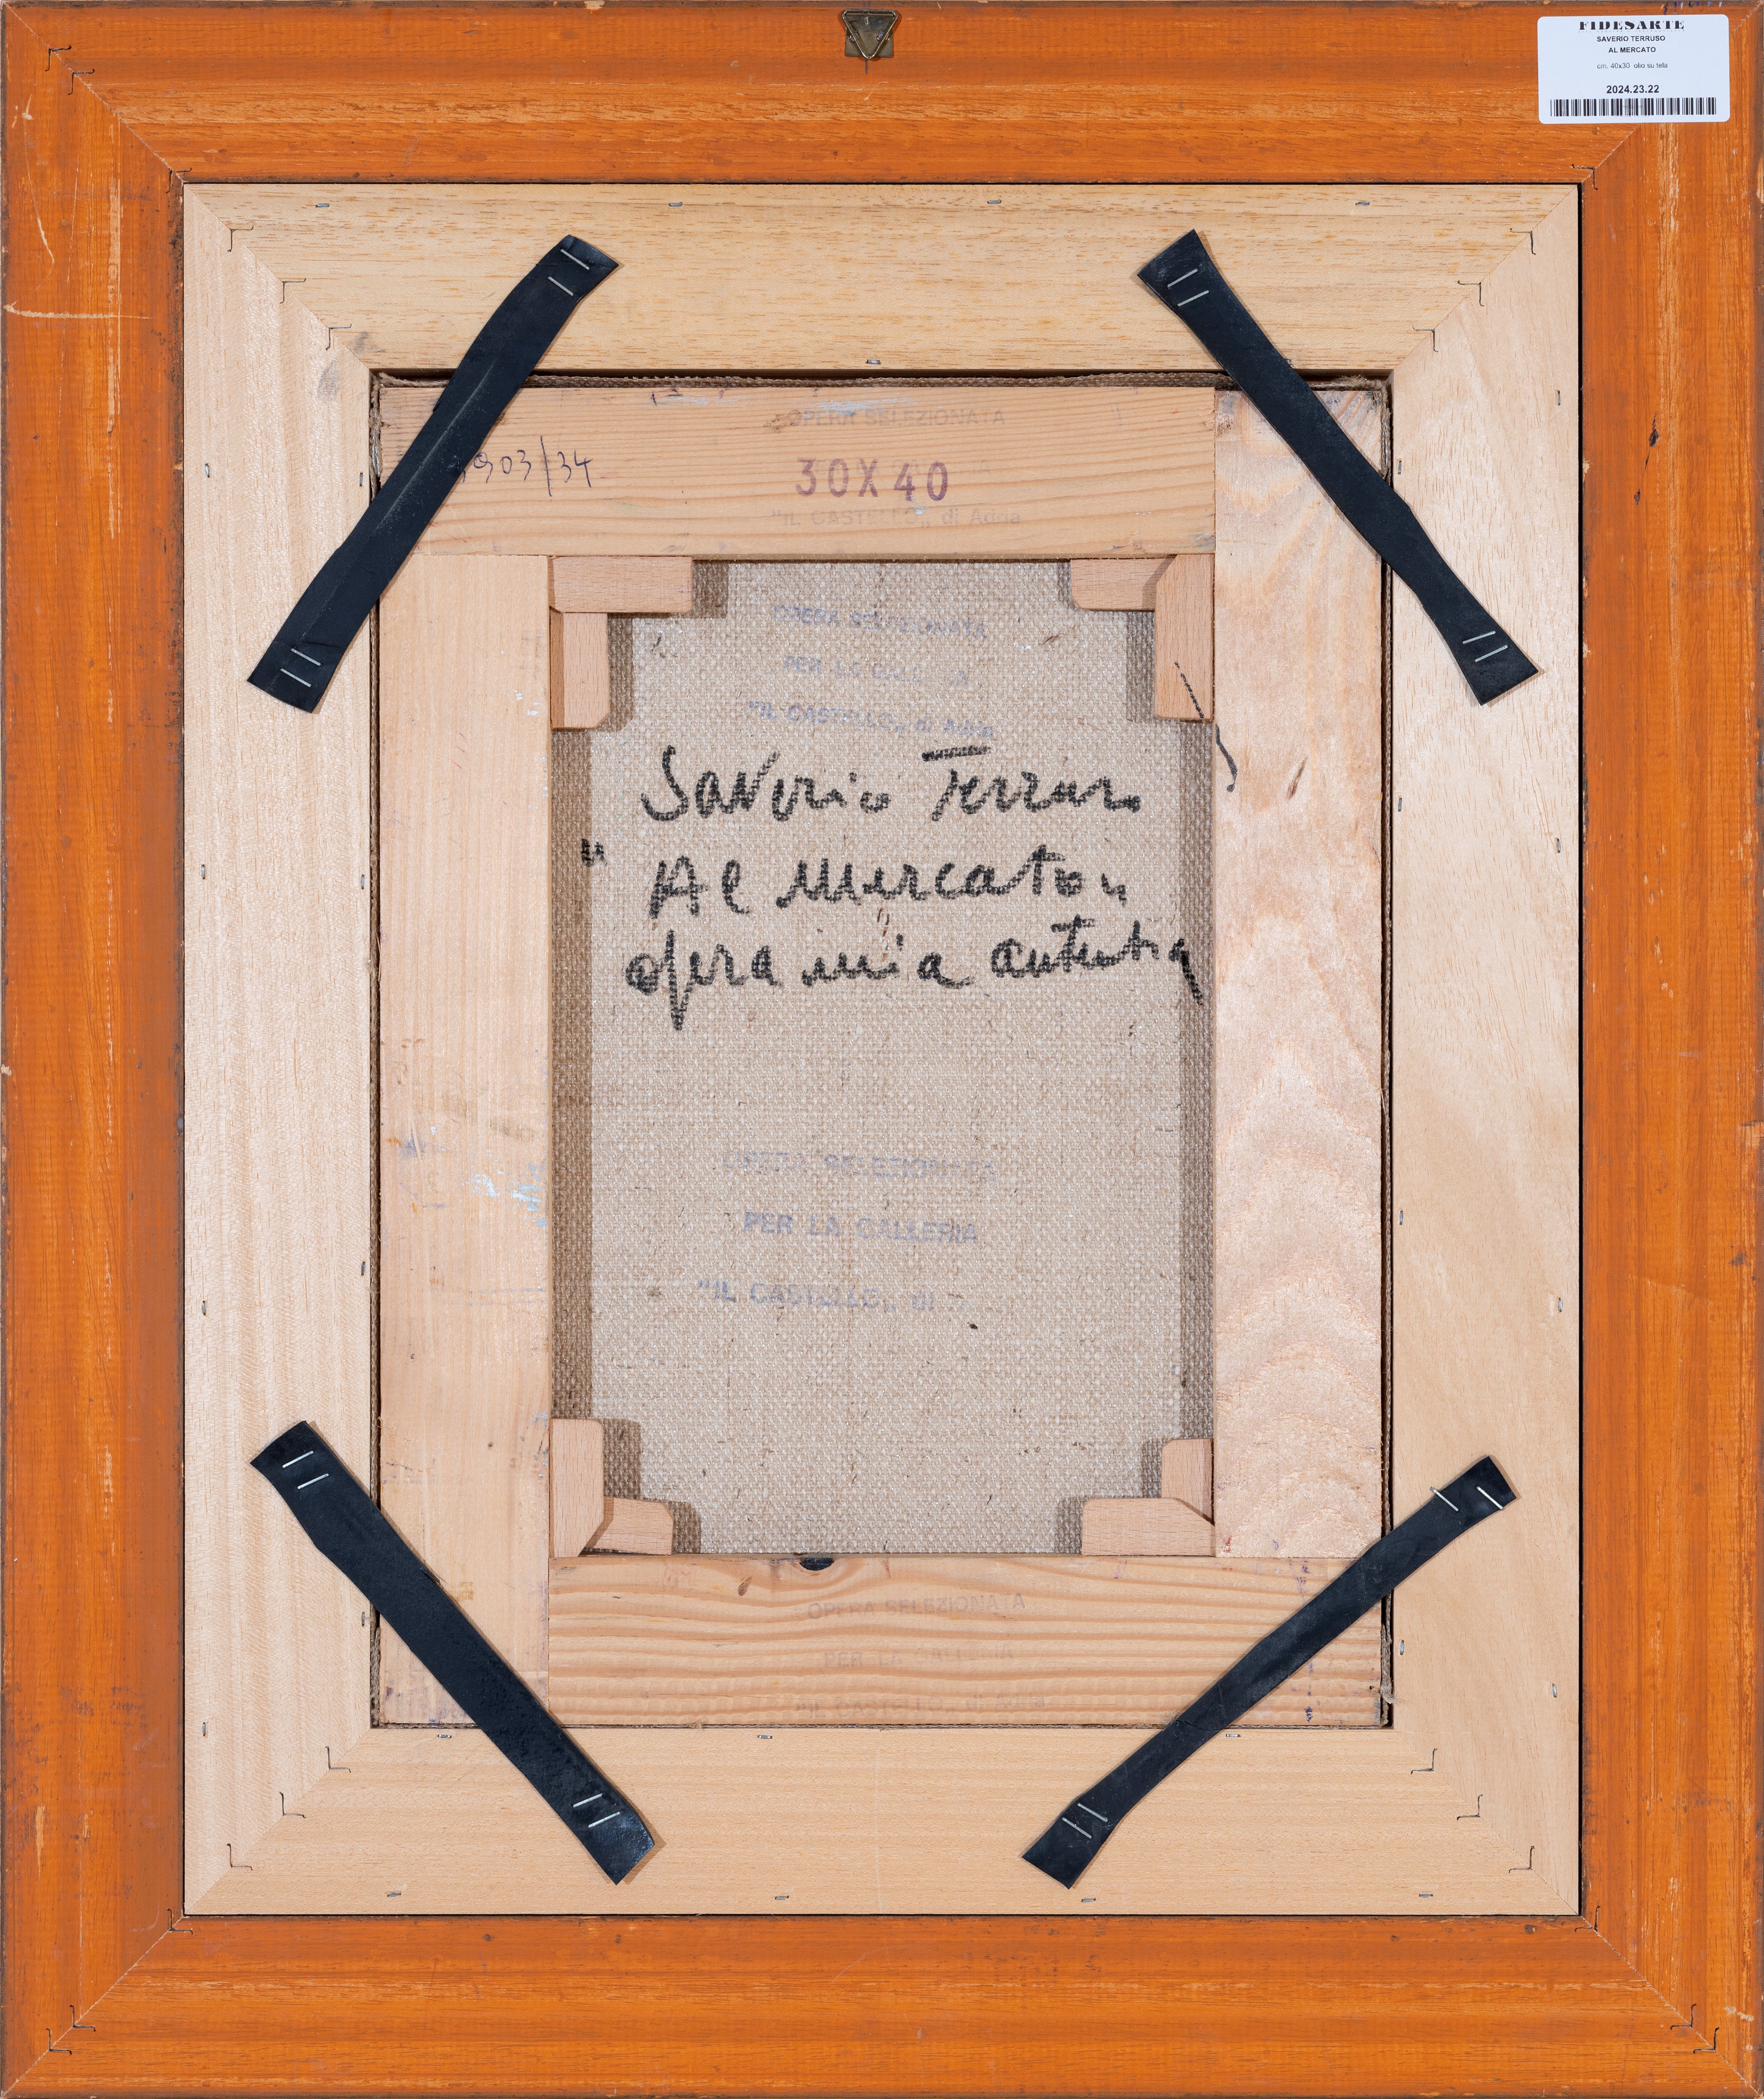 FIDESARTE
SAVERIO TERRUSO
AL MERCATO
cm. 40x30 olio su tela
2024.23.22
OPERA SELEZIONATA
903/34
30X40
"IL CASTELLO„ di Adria
OPERA SELEZIONATA
PER LA GALLERIA
"IL CASTELLO„ di Adria
Saverio Terruso
"Al mercato"
opera mia autentica
OPERA SELEZIONATA
PER LA GALLERIA
"IL CASTELLO„ di
OPERA SELEZIONATA
PER LA GALLERIA
"IL CASTELLO„ di Adria